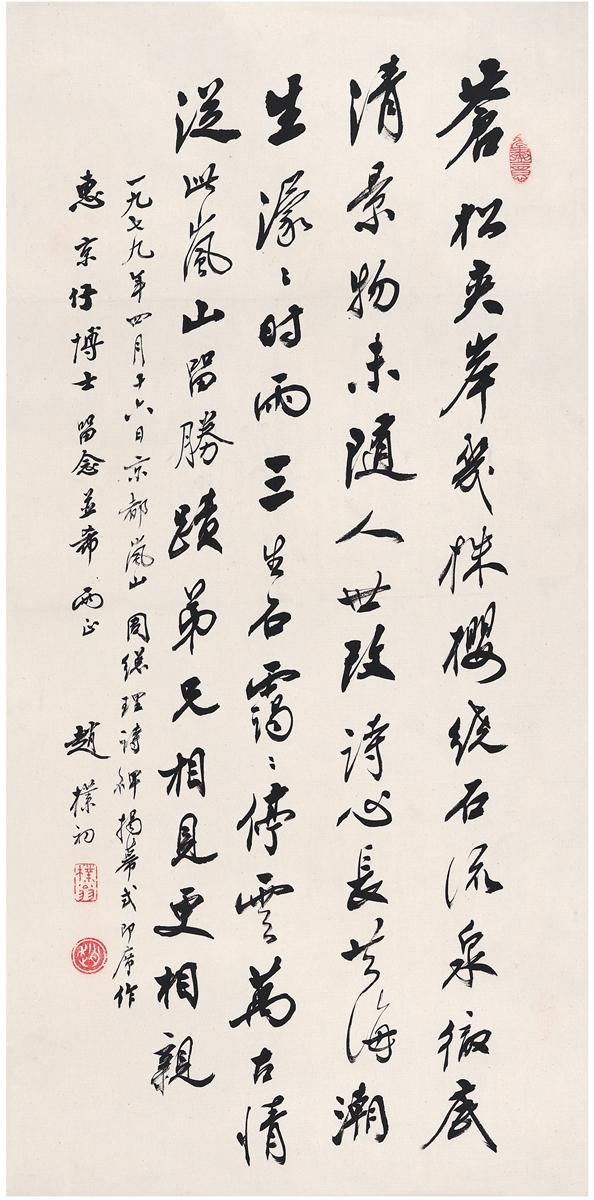 蒼松夹岸几株櫻绕石流泉徹底
清景物未随人世改诗心長共海潮
生濛〻时雨三生石靄〻停雲萬古情
從此嵐山留勝蹟弟兄相見更相親
一九七九年四月十六日京都嵐山周總理詩碑揭幕式即席作
惠京仔博士留念並希兩正
趙樸初
樸翁
趙